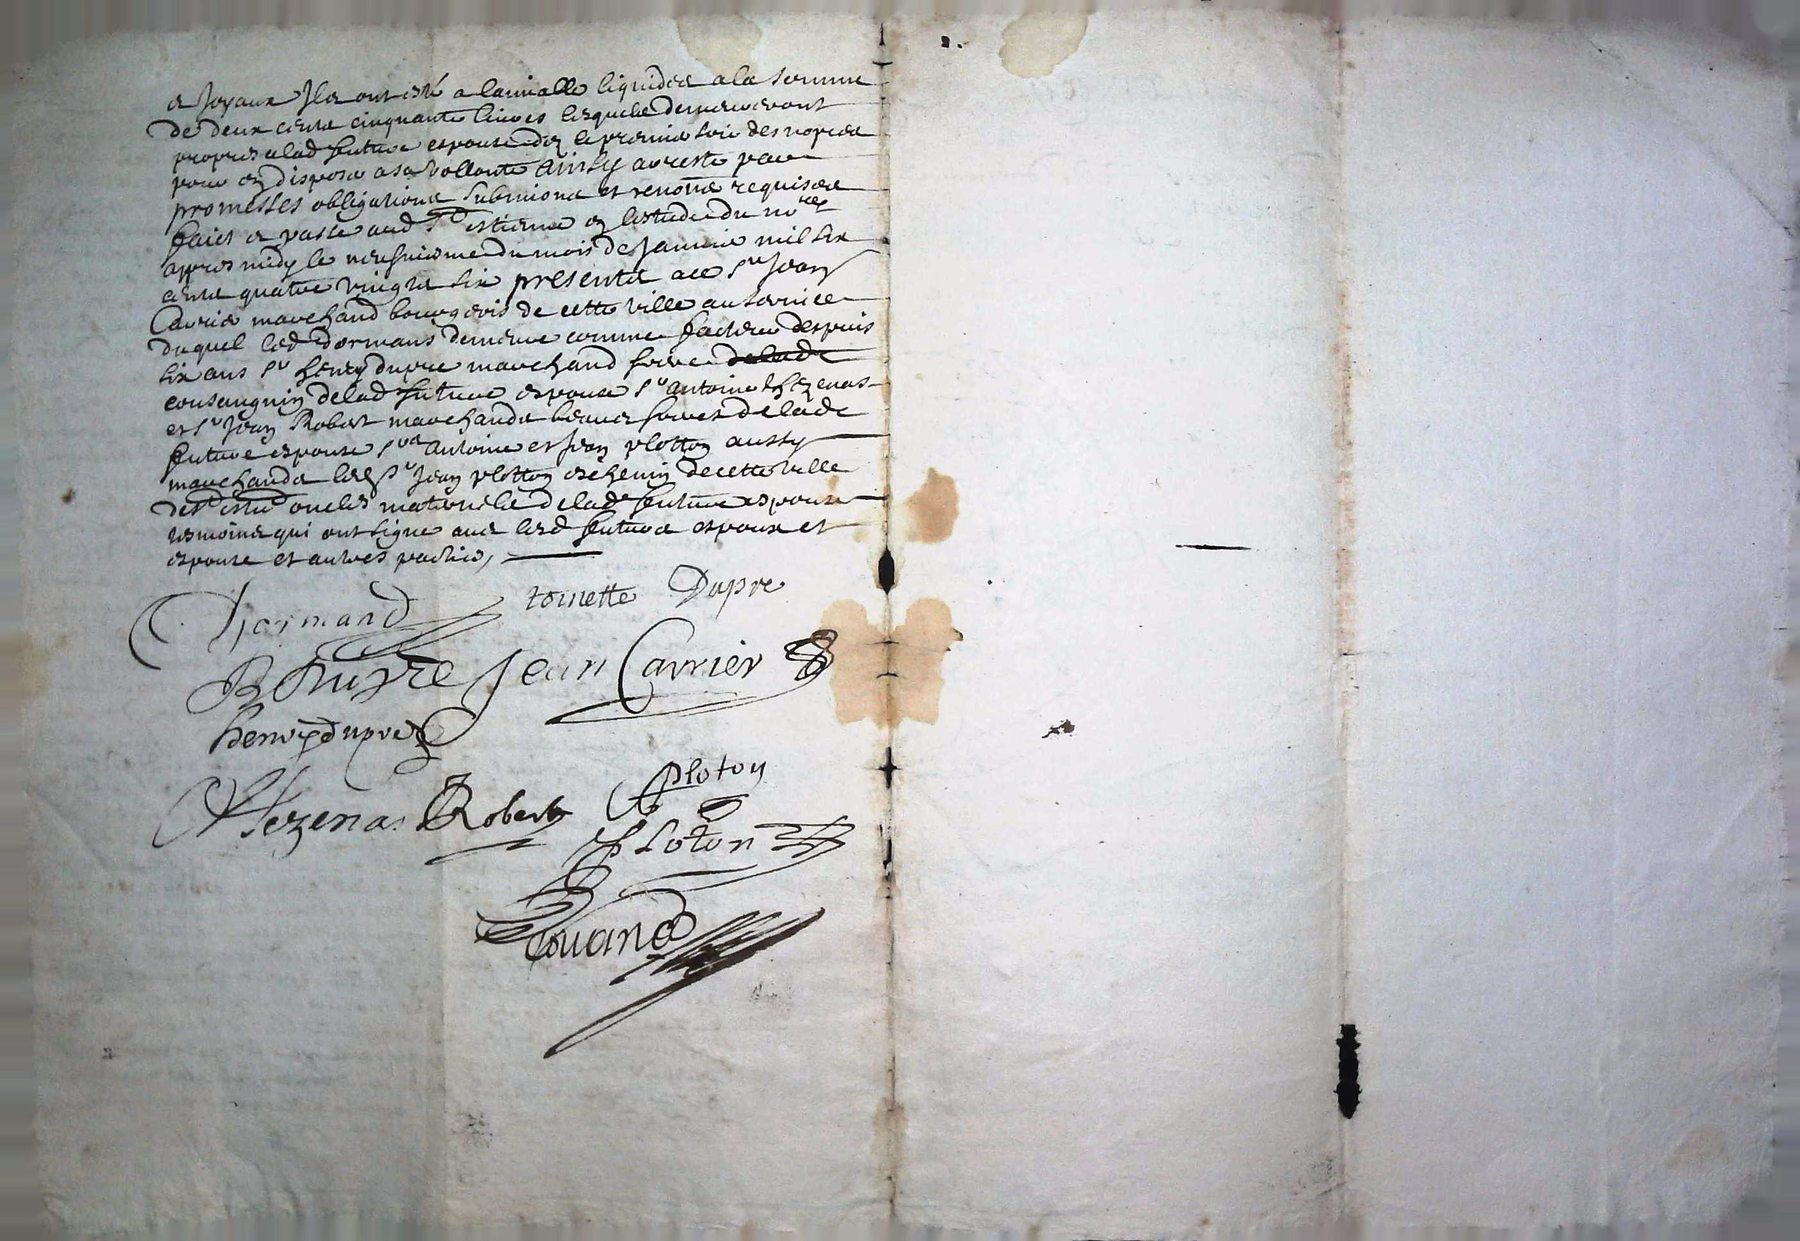 & Joyaux Ils ont esté a lamialle liquidés a la somme
de deux cents cinquante livres lesquels demeureront
propres a lad future espouse dez le premier soir des nopces
pour en disposer a sa vollonté ainsy au reste par
promesses obligations submions et renoñs requises
faict & passé aud St estienne en lestude du nore
appres midy le neufviesme du mois de Janvier mil six
cents quatre vingts six presents a ce sr Jean
Carrier marchand bourgeois de cette ville au service
duquel led dormans demeure comme facteur despuis
six ans sr henry dupre marchand frere
consanguin de lad future espouse sr antoine Thezenas
et sr Jean Robert marchands beaux freres de lade
future espouse srs antoine et Jean plotton aussy
marchands led sr Jean plotton eschevin de cette ville
de St estne oncles maternels de lade future espouse
tesmoins qui ont signe avec lesd futurs espoux et
espouse et autres parties,
Dormand toinette Dupre
B Dupre Jean Carrier
henry dupre
A Thezenas J Robert A Ploton
J Ploton